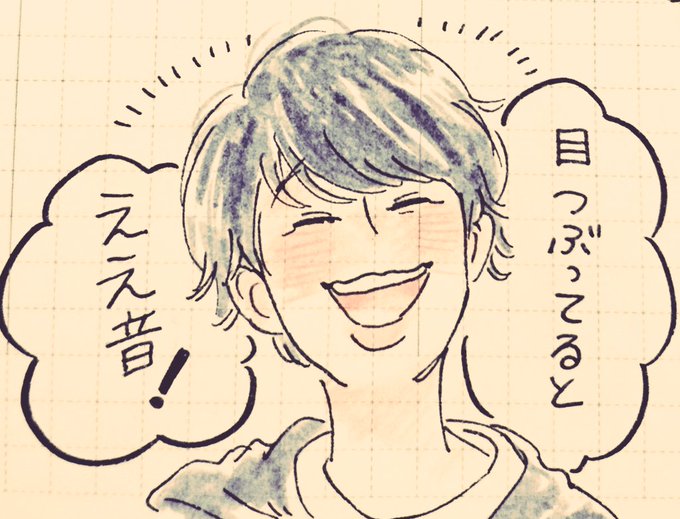 目つぶってると
ええ昔!